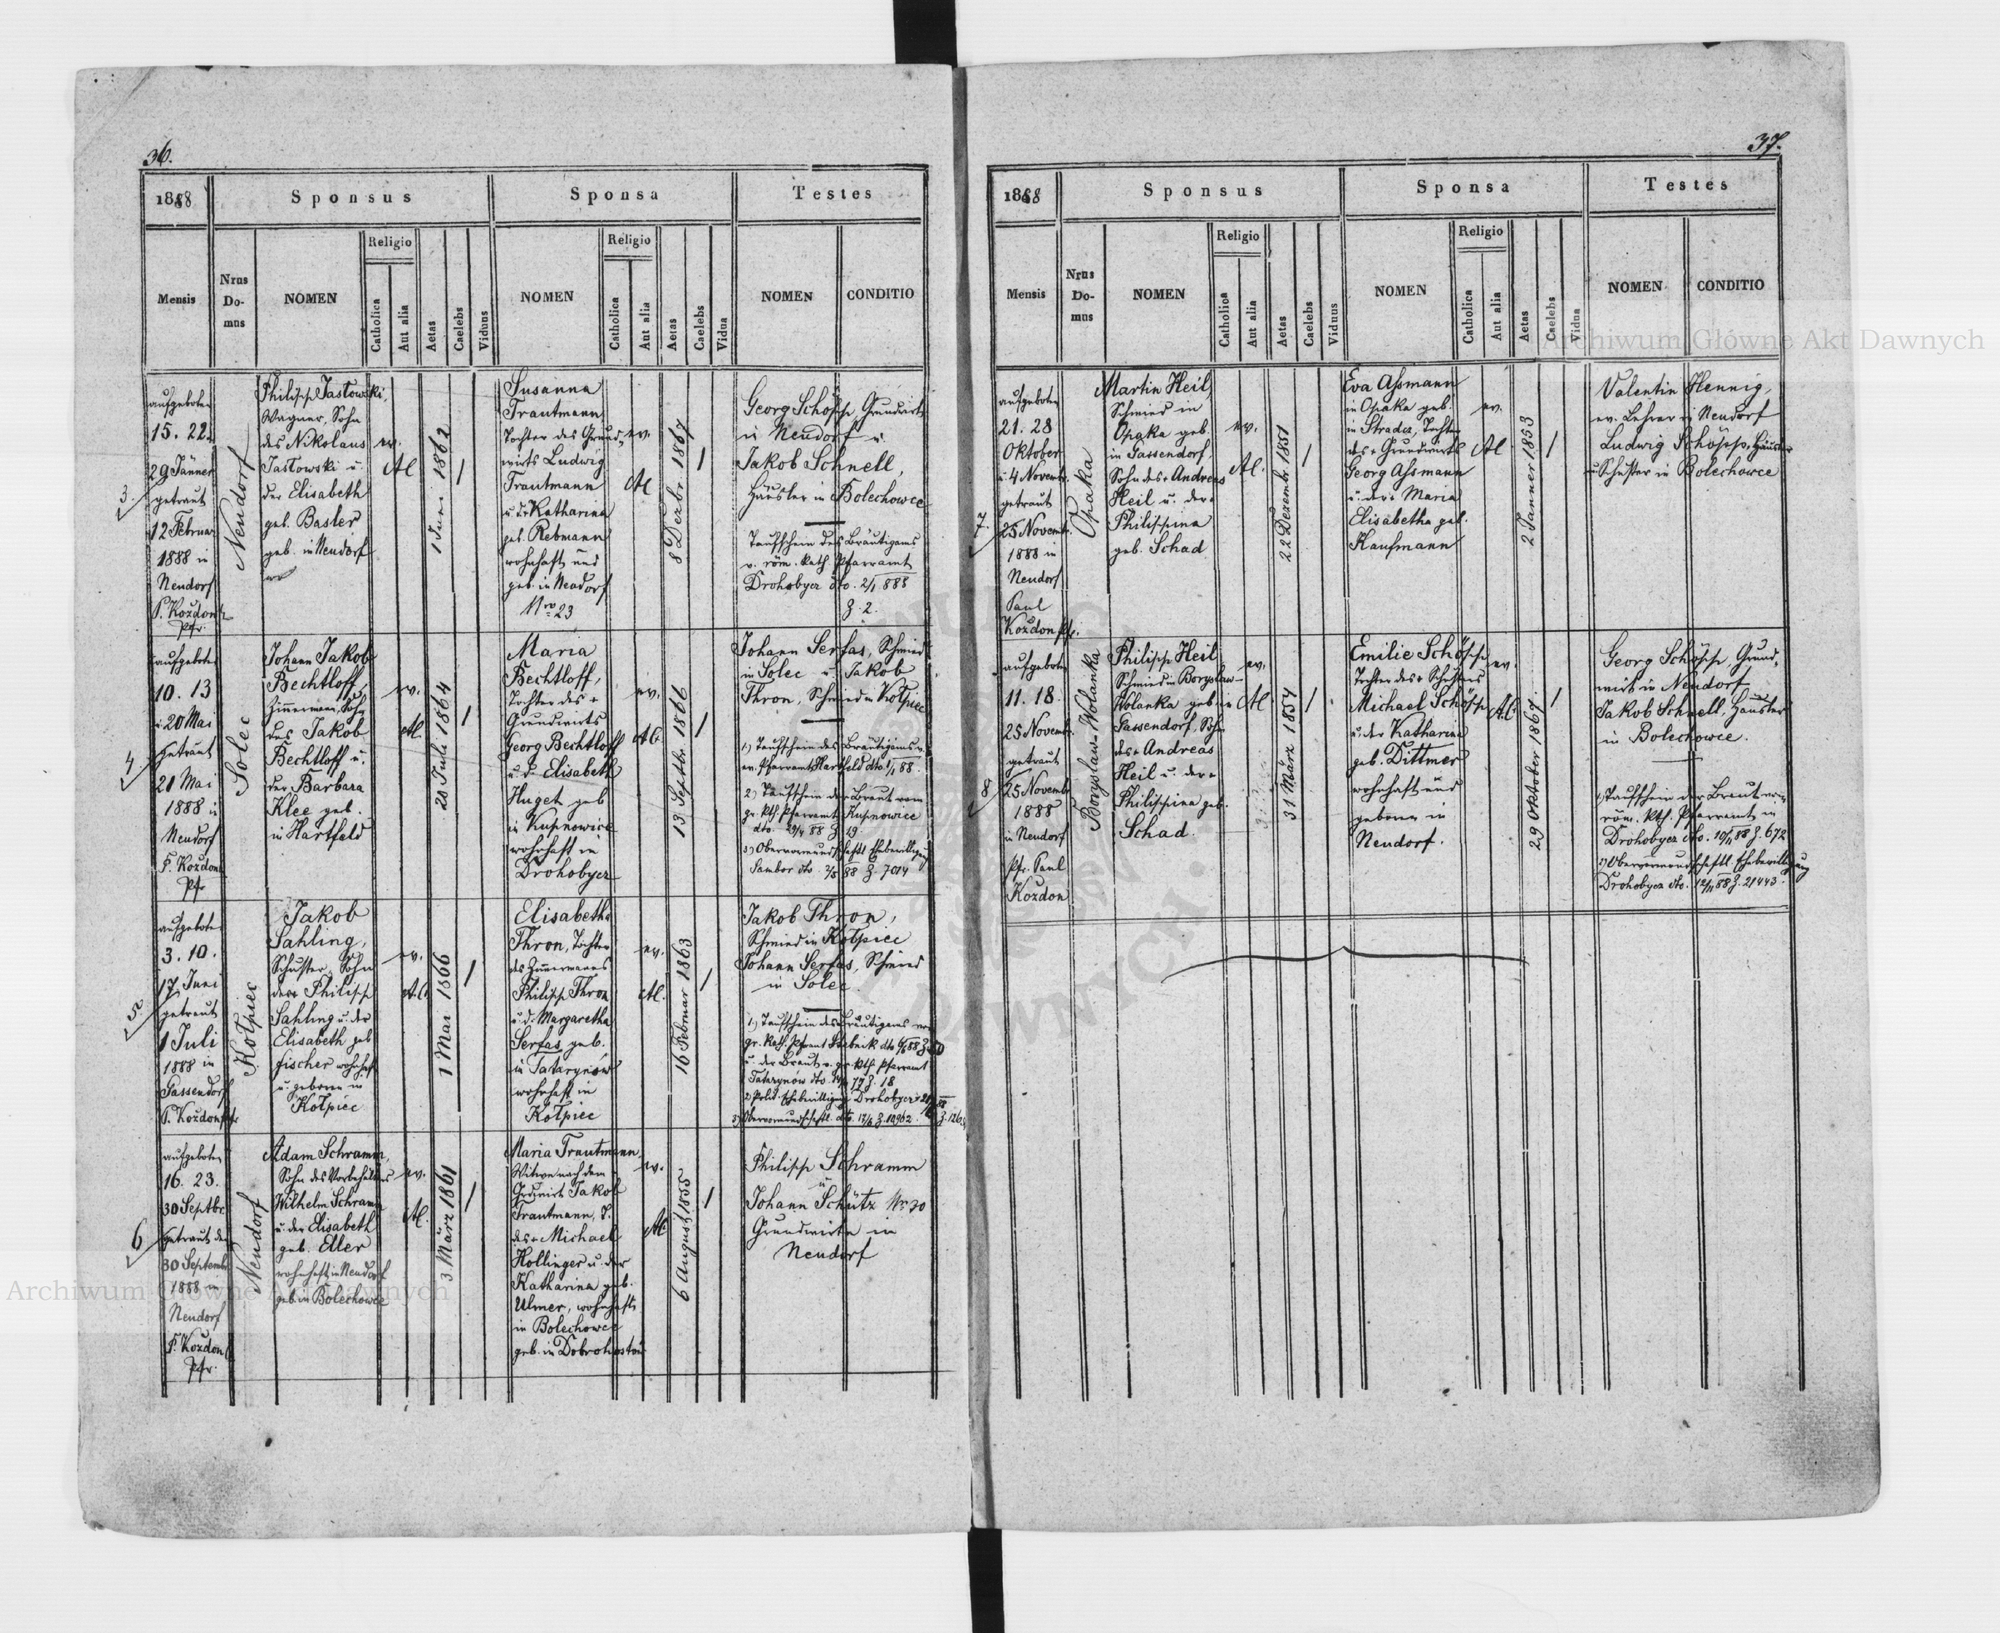 36.
1888
Sponsus
Sponsa
Testes
Mensis
Nrus
Do-
mus
NOMEN
Religio
Catholica
Aut alia
Aetas
Caelebs
Viduus
NOMEN
Religio
Catholica
Aut alia
Aetas
Caelebs
Vidua
NOMEN
CONDITIO
3.
aufgeboten
15. 22.
29 Jänner
getraut
12 Februar
1888 in
Neudorf
P. Kozdon
Pfr.
Neudorf
Philipp Jastowski,
Wagner, Sohn
des Nikolaus
Jastowski u.
der Elisabeth
geb. Basler
geb. in Neudorf
ev.
AC
1 Juni 1862
Susanna
Trautmann
Tochter des Grund-
wirts Ludwig
Trautmann
u. dr Katharina
geb. Rebmann
wohnhaft und
geb. in Neudorf
Nro 23
ev.
AC
8 Dezbr 1867
Georg Schöpp, Grundwirt
in Neudorf u.
Jakob Schnell,
Häusler in Bolechowce
Taufschein des Bräutigams
v. röm. kath. Pfarramt
Drohobycz dto. 2/1 888
Z. 2.
4
aufgeboten
10. 13
u 20 Mai
getraut
21 Mai
1888 in
Neudorf
P. Kozdon
Pfr
Solec
Johann Jakob
Bechtloff,
Zimmermann, Sohn
des Jakob
Bechtloff u.
der Barbara
Klee geb.
in Hartfeld
ev.
AC.
20 Juli 1864
Maria
Bechtloff,
Tochter des +
Grundwirts
Georg Bechtloff
u. d. Elisabeth
Huget geb
in Kupnowice
wohnhaft in
Drohobycz
ev.
AC
13 Septbr 1866
Johann Serfas, Schmied
in Solec u. Jakob
Thron, Schmied in Kołpiec
1.) Taufschein des Bräutigams v.
ev. Pfarramt Hartfeld dto 1/1 88.
2.) Taufschein der Braut vom
gr. kth. Pfarramt Kupnowice
dto. 29/4 88 Z 29
3.) Obervormundschaftl. Ehebewilligung
Sambor dto 2/5 88 Z. 7014
5.
aufgeboten
3. 10.
17 Juni
getraut
1 Juli
1888 in
Gassendorf
P. Kozdon Pfr
Kołpiec
Jakob
Sahling,
Schuster, Sohn
der+ Philipp
Sahling u. der
Elisabeth geb
Fischer wohnhaft
u. geboren in
Kołpiec
ev.
A.C.
1 Mai 1866
Elisabeth
Thron, Tochter
des Zimmermanns
Philipp Thron
u. d. Margaretha
Serfas geb.
in Tatarynów
wohnhaft in
Kołpiec
ev.
AC.
16 Februar 1863
Jakob Thron,
Schmied in Kołpiec
Johann Serfas, Schmied
in Solec.
1.) Taufschein des Bräutigams vom
u. der Braut v. gr. kth. Pfarramt
6
aufgeboten
16. 23.
30 Septbr.
getraut den
30 Septembr
1888 in
Neudorf
P. Kozdon
Pfr.
Neudorf
Adam Schramm,
Sohn des Vorbehalters
Wilhelm Schramm
u. der Elisabeth
geb. Eller
wohnhaft in Neudorf
geb. in Bolechowce
ev.
AC.
3 März 1861
Maria Trautmann,
Witwe nach dem +
Grundwirt Jakob
Trautmann, T.
des+ Michael
Hollinger u. der
Katharina geb.
Ulmer, wohnhaft
in Bolechowce
geb. in Dobrohostów
ev.
AC
6 August 1855
Philipp Schramm
u
Johann Schütz Nr 30
Grundwirte in
Neudorf
37.
1888
Sponsus
Sponsa
Testes
Mensis
Nrus
Do-
mus
NOMEN
Religio
Catholica
Aut alia
Aetas
Caelebs
Viduus
NOMEN
Religio
Catholica
Aut alia
Aetas
Caelebs
Vidua
NOMEN
CONDITIO
7.
aufgeboten
21. 28
Oktober
u. 4 Novembr.
getraut
25 Novembr.
1888 in
Neudorf
Paul
Kozdon Pfr.
Opaka
Martin Heil,
Schmied in
Opaka geb.
in Gassendorf,
Sohn des+ Andreas
Heil u. der+
Philippina
geb. Schad
ev.
AC.
22 Dezembr 1851
Eva Aßmann
in Opaka geb.
in Stradcz, Tochter
des+ Grundwirts
Georg Aßmann
u. der+ Maria
Elisabetha geb.
Kaufmann
ev.
AC
2 Jänner 1853
Valentin Hennig,
ev. Lehrer in Neudorf
Ludwig Schöpp, Häusler
u. Schuster in Bolechowce
8
aufgeboten
11. 18.
25 Novembr.
getraut
25 Novembr
1888
in Neudorf
Pfr. Paul
Kozdon
Borysław-Wolanka
Philipp Heil
Schmied in Borysław-
Wolanka geb. in
Gassendorf, Sohn
des+ Andreas
Heil u. der+
Philippina geb.
Schad.
ev.
AC
31 März 1854
Emilie Schöpp
Tochter des+ Schusters
Michael Schöpp
u. der Katharina
geb. Dittmer
wohnhaft und
geboren in
Neudorf.
ev.
A.C.
29 Oktober 1867.
Georg Schöpp, Grund-
wirt in Neudorf
Jakob Schnell, Häusler
in Bolechowce.
1.) Taufschein der Braut vom
röm. kth. Pfarramt in
Drohobycz dto. 10/11 88 Z. 672
2.) Obervormundschaftl. Ehebewilligung
Drohobycz dto. 12/11 88 Z. 21443.
Archiwum Główne Akt Dawnych
Archiwum Główne Akt Dawnych